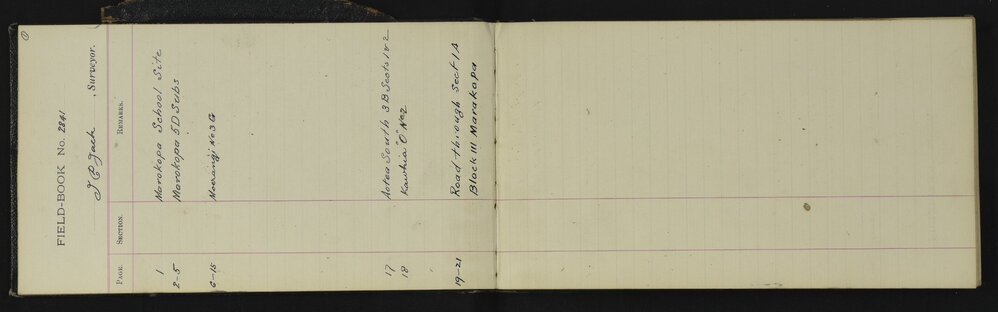 FIELD-BOOK No. 2841
J P Jack, Surveyor.
PAGE. SECTION. REMARKS.
1 Marokopa School Site
2-5 Marokopa 5D Subs
6-15 Moerangi No 3G
17 Aotea South 3B Sects 1 & 2
18 Kawhia "O" No 2
19-21 Road through Sect 1A
Block III Marakopa